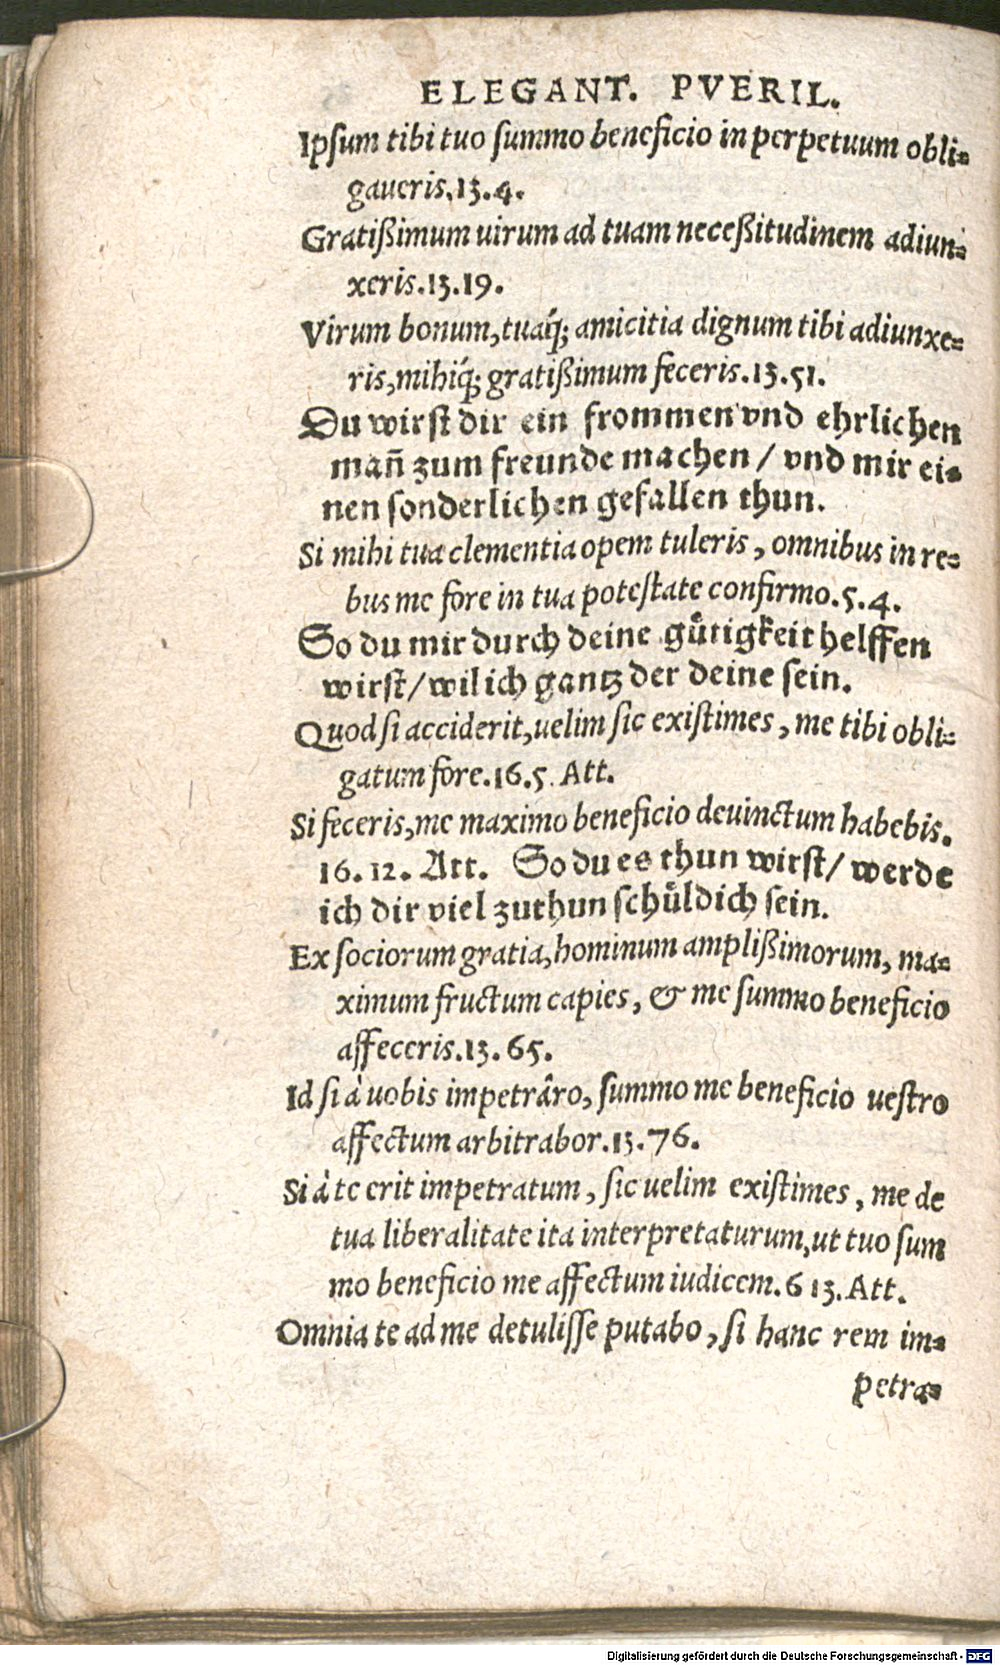 ELEGANT. PVERIL.
Ipſum tibi tuo ſummo beneficio in perpetuum obli=
gaueris,13.4.
Gratißimum uirum ad tuam neceßitudinem adiun=
xeris.13.19.
Virum bonum,tuaq́; amicitia dignum tibi adiunxe=
ris,mihiq́; gratißimum feceris.13.51.
Du wirſt dir ein frommen vnd ehrlichen
man̄ zum freunde machen / vnd mir ei=
nen ſonderlichen gefallen thun.
Si mihi tua clementia opem tuleris, omnibus in re=
bus me fore in tua poteſtate confirmo.5.4.
So du mir durch deine guͤtigkeit helffen
wirſt/wil ich gantz der deine ſein.
Quod ſi acciderit,uelim ſic exiſtimes, me tibi obli=
gatum fore.16.5. Att.
Si feceris,me maximo beneficio deuinctum habebis.
16.12. Att. So du es thun wirſt/ werde
ich dir viel zuthun ſchuͤldich ſein.
Ex ſociorum gratia,hominum amplißimorum, ma=
ximum fructum capies, & me ſummo beneficio
affeceris.13.65.
Id ſi à uobis impetrâro, ſummo me beneficio ueſtro
affectum arbitrabor.13.76.
Si à te erit impetratum, ſic uelim exiſtimes, me de
tua liberalitate ita interpretaturum,ut tuo ſum
mo beneficio me affectum iudicem.6 13. Att.
Omnia te ad me detuliſſe putabo, ſi hanc rem im=
petra=
Digitalisierung gefördert durch die Deutsche Forschungsgemeinschaft - DFG